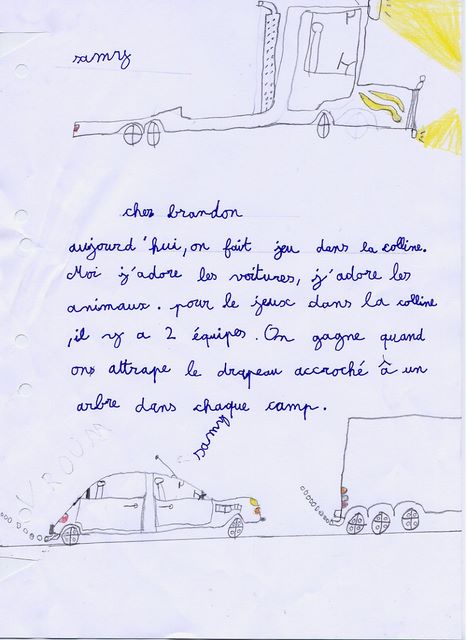 samy
cher brandon
aujourd'hui, on fait jeu dans la colline.
Moi j'adore les voitures, j'adore les
animaux. pour le jeux dans la colline
, il y a 2 équipes. On gagne quand
ons attrape le drapeau accroché â un
arbre dans chaque camp.
samy
VROUM